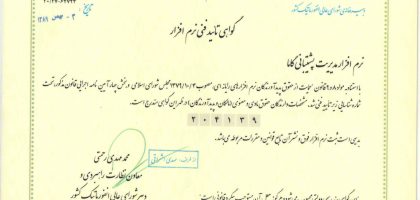 دبیرخانه شورای عالی انفورماتیک کشور
تاریخ ۳ - بهمن ۱۳۸۹
گواهی تائید فنی نرم افزار
نرم افزار مدیریت پشتیبانی کاما
با استناد مواد ۸ و ۱۰ قانون حمایت از حقوق پدیدآورندگان نرم افزارهای رایانه ای، مصوب ۱۳۷۹/۱۰/۴ مجلس شورای اسلامی و بخش چهار آیین نامه اجرایی قانون مذکور، تحت
شماره شناسایی زیر تائید فنی شد. مشخصات دارندگان حقوق مادی و معنوی (مالکان و پدیدآورندگان) در ظهر این گواهی مندرج است.
۲۰۴۱۳۹
بدیهی است ثبت نرم افزار فوق و نشر آن تابع قوانین و مقررات مربوطه می باشد.
محمد مهدی رحمتی
معاون نظارت راهبردی و
دبیر شورای عالی انفورماتیک کشور
از طرف، مهدی